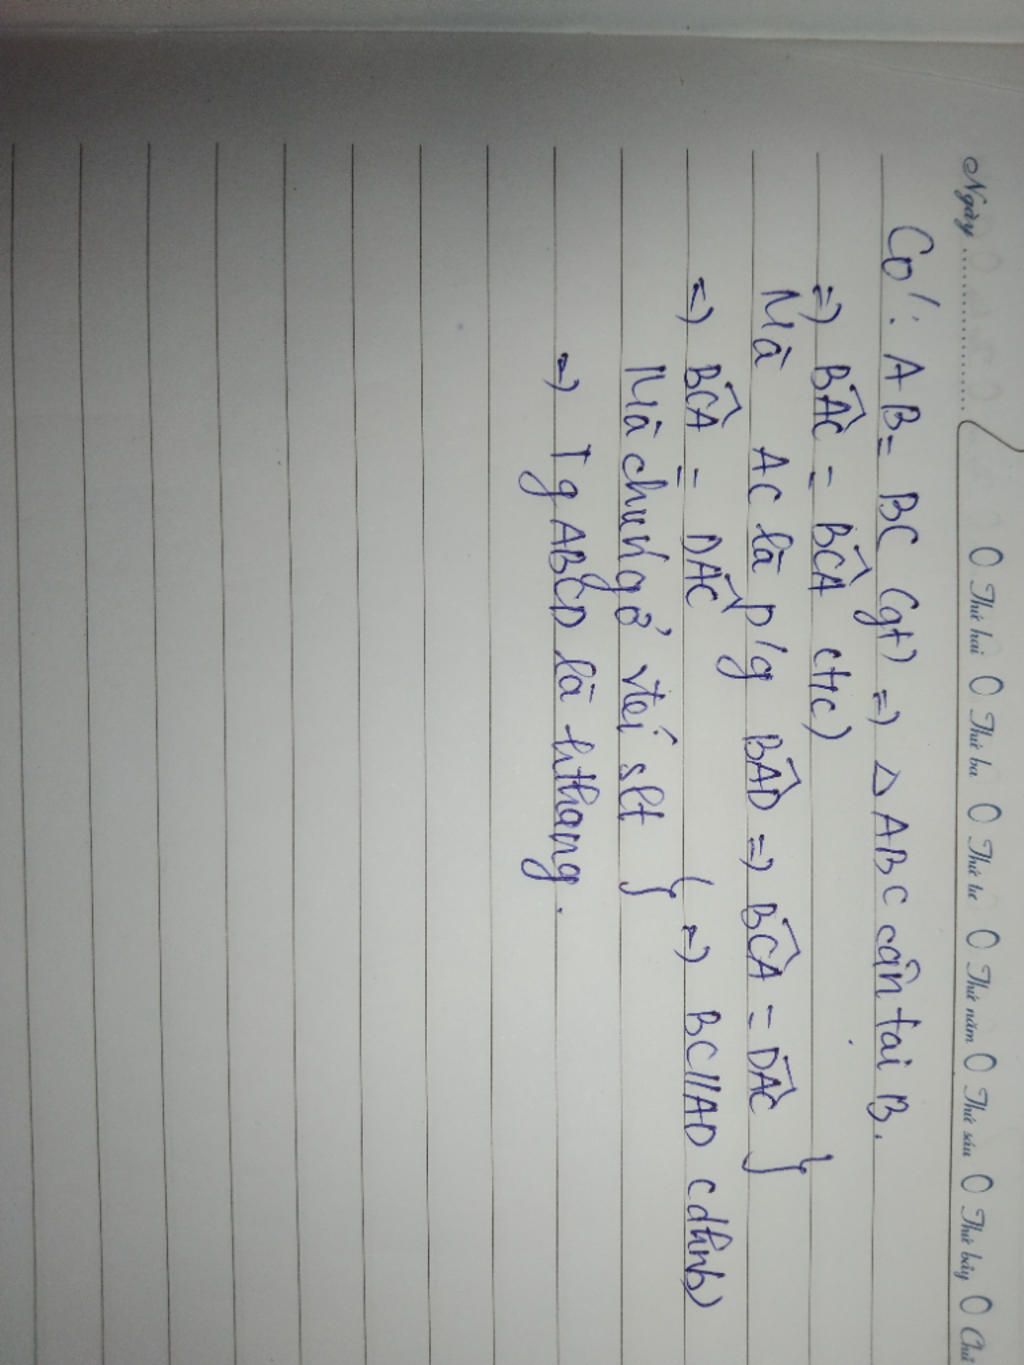 Ngày ............... O Thứ hai O Thứ ba O Thứ tư O Thứ năm O Thứ sáu O Thứ bảy O Chủ
Có: AB = BC (gt) => △ ABC cân tại B.
=> BÂC = BĈA (t/c)
Mà AC là p/g BÂD => BĈA = DÂC }
=> BĈA = DÂC
Mà chúng ở vtrí slt } => BC//AD (dhnb)
=> Tg ABCD là hthang.